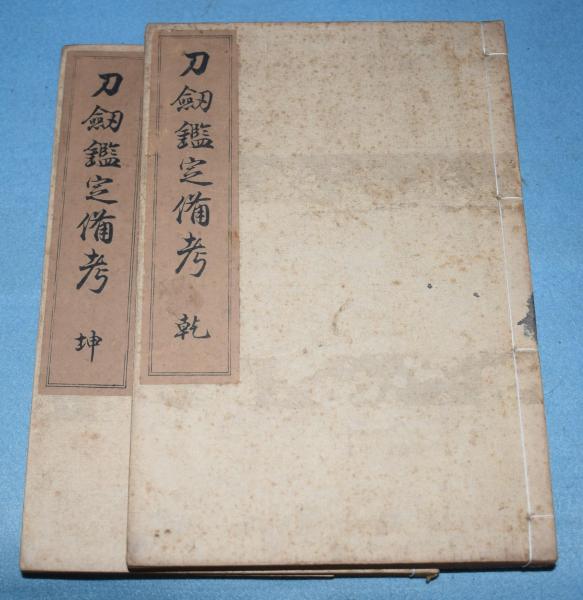 刀劔鑑定備考
乾
刀劔鑑定備考
坤